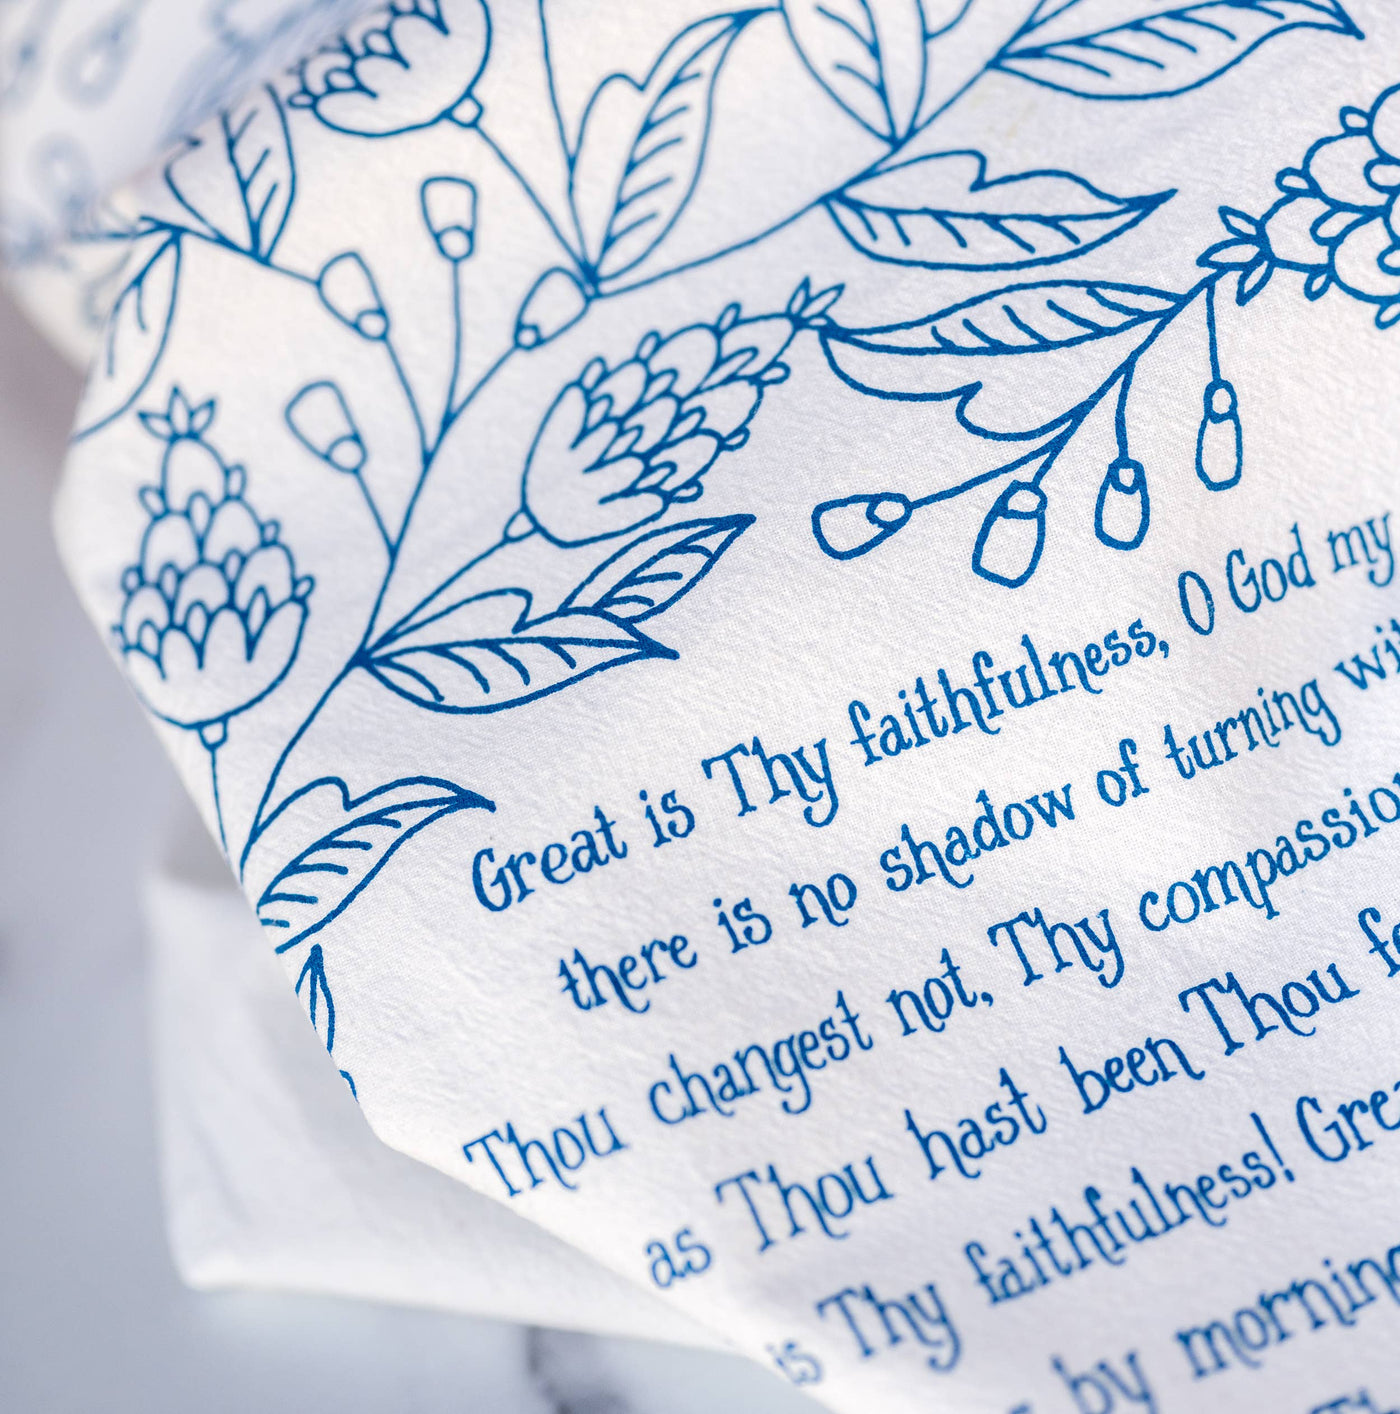 Great is Thy faithfulness, O God my
there is no shadow of turning
Thou changest not, Thy
as Thou hast been Thou
is Thy faithfulness!
by